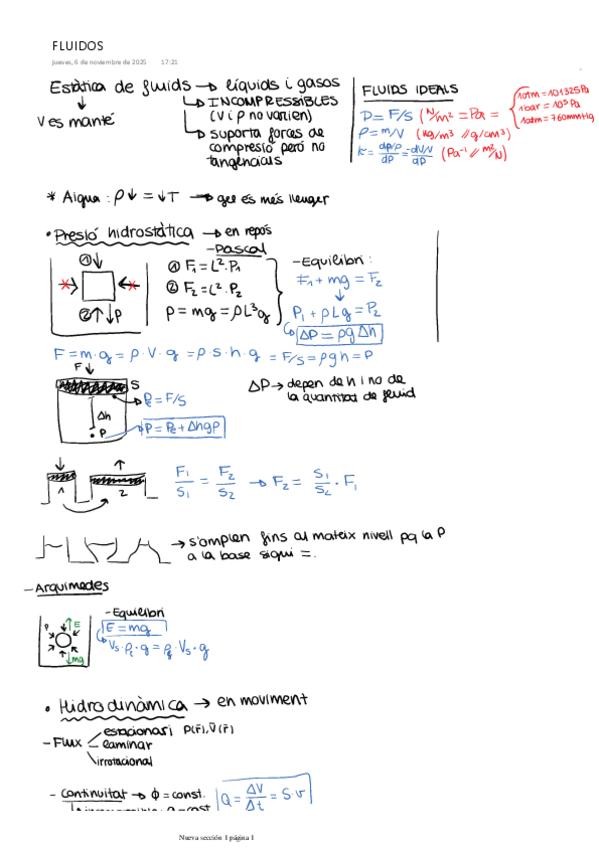 FLUIDOS
jueves, 6 de noviembre de 2025 17:21
Estàtica de fluids → líquids i gasos
↓
V es manté
↳ INCOMPRESSIBLES
(V i ρ no varien)
↳ suporta forces de
compresió però no
tangencials
FLUIDS IDEALS
P = F/S (N/m² = Pa =
1atm = 101325 Pa
1bar = 10⁵ Pa
1atm = 760mmHg
ρ = m/V (kg/m³ // g/cm³)
K = (dρ/ρ)/dP = -(dV/V)/dP (Pa⁻¹ // m²/N)
* Aigua : ρ↓ = ↓T → gel és més lleuger
• Pressió hidrostàtica → en repòs
- Pascal
① ↓
② ↑ ↓ P
① F₁ = L²·P₁
② F₂ = L²·P₂
P = mg = ρL³g
- Equilibri :
F₁ + mg = F₂
↓
P₁ + ρLg = P₂
↳ ΔP = ρgΔh
F = m·g = ρ·V·g = ρ·S·h·g = F/S = ρgh = P
F ↓
S
Δh
• P
= F/S
Δhgρ
ΔP → depèn de h i no de
la quantitat de fluid
1 2
F₁/S₁ = F₂/S₂ → F₂ = S₁/S₂ · F₁
→ s'omplen fins al mateix nivell pq la P
a la base sigui =.
- Arquímedes
P E
mg
- Equilibri
E = mg
↳ Vs·ρ·g = ρ·Vs·g
• Hidrodinàmica → en moviment
- Flux
estacionari P(r̄), v̄(r̄)
laminar
irrotacional
- Continuïtat → ϕ = const. Q = ΔV/Δt = S·v
Nueva sección 1 página 1